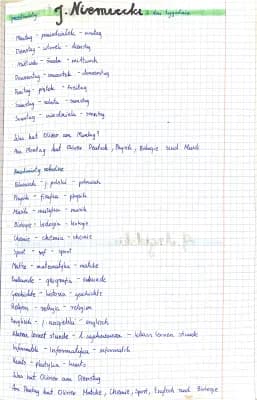 J. Niemiecki
dni tygodnia
Montag - poniedziałek - montag
Dienstag - wtorek - dienstag
Mittwoch - środa - mittwoch
Donnerstag - czwartek - donnerstag
Freitag - piątek - freitag
Samstag - sobota - samstag
Sonntag - niedziela - sonntag
Was hat Oliver am Montag?
Am Montag hat Oliver Deutsch, Physik, Biologie und Musik
Przedmioty szkolne
j. polski
Physik - fizyka - physik
Musik - muzyka - musik
Biologie - biologia - biologie
Chemie - chemia - chemie
Sport - wf - sport
Mathe - matematyka - mathe
Erdkunde - geografia - erdkunde
Geschichte - historia - geschichte
Religion - religia - religion
Englisch - j. angielski - englisch
stunde - l. wychowawcza - stunde
Informatik - informatyka - informatik
Kunst - plastyka - kunst
Was hat Oliver am Dienstag
Am hat Oliver Mathe, Chemie, Sport, Englisch und Biologie